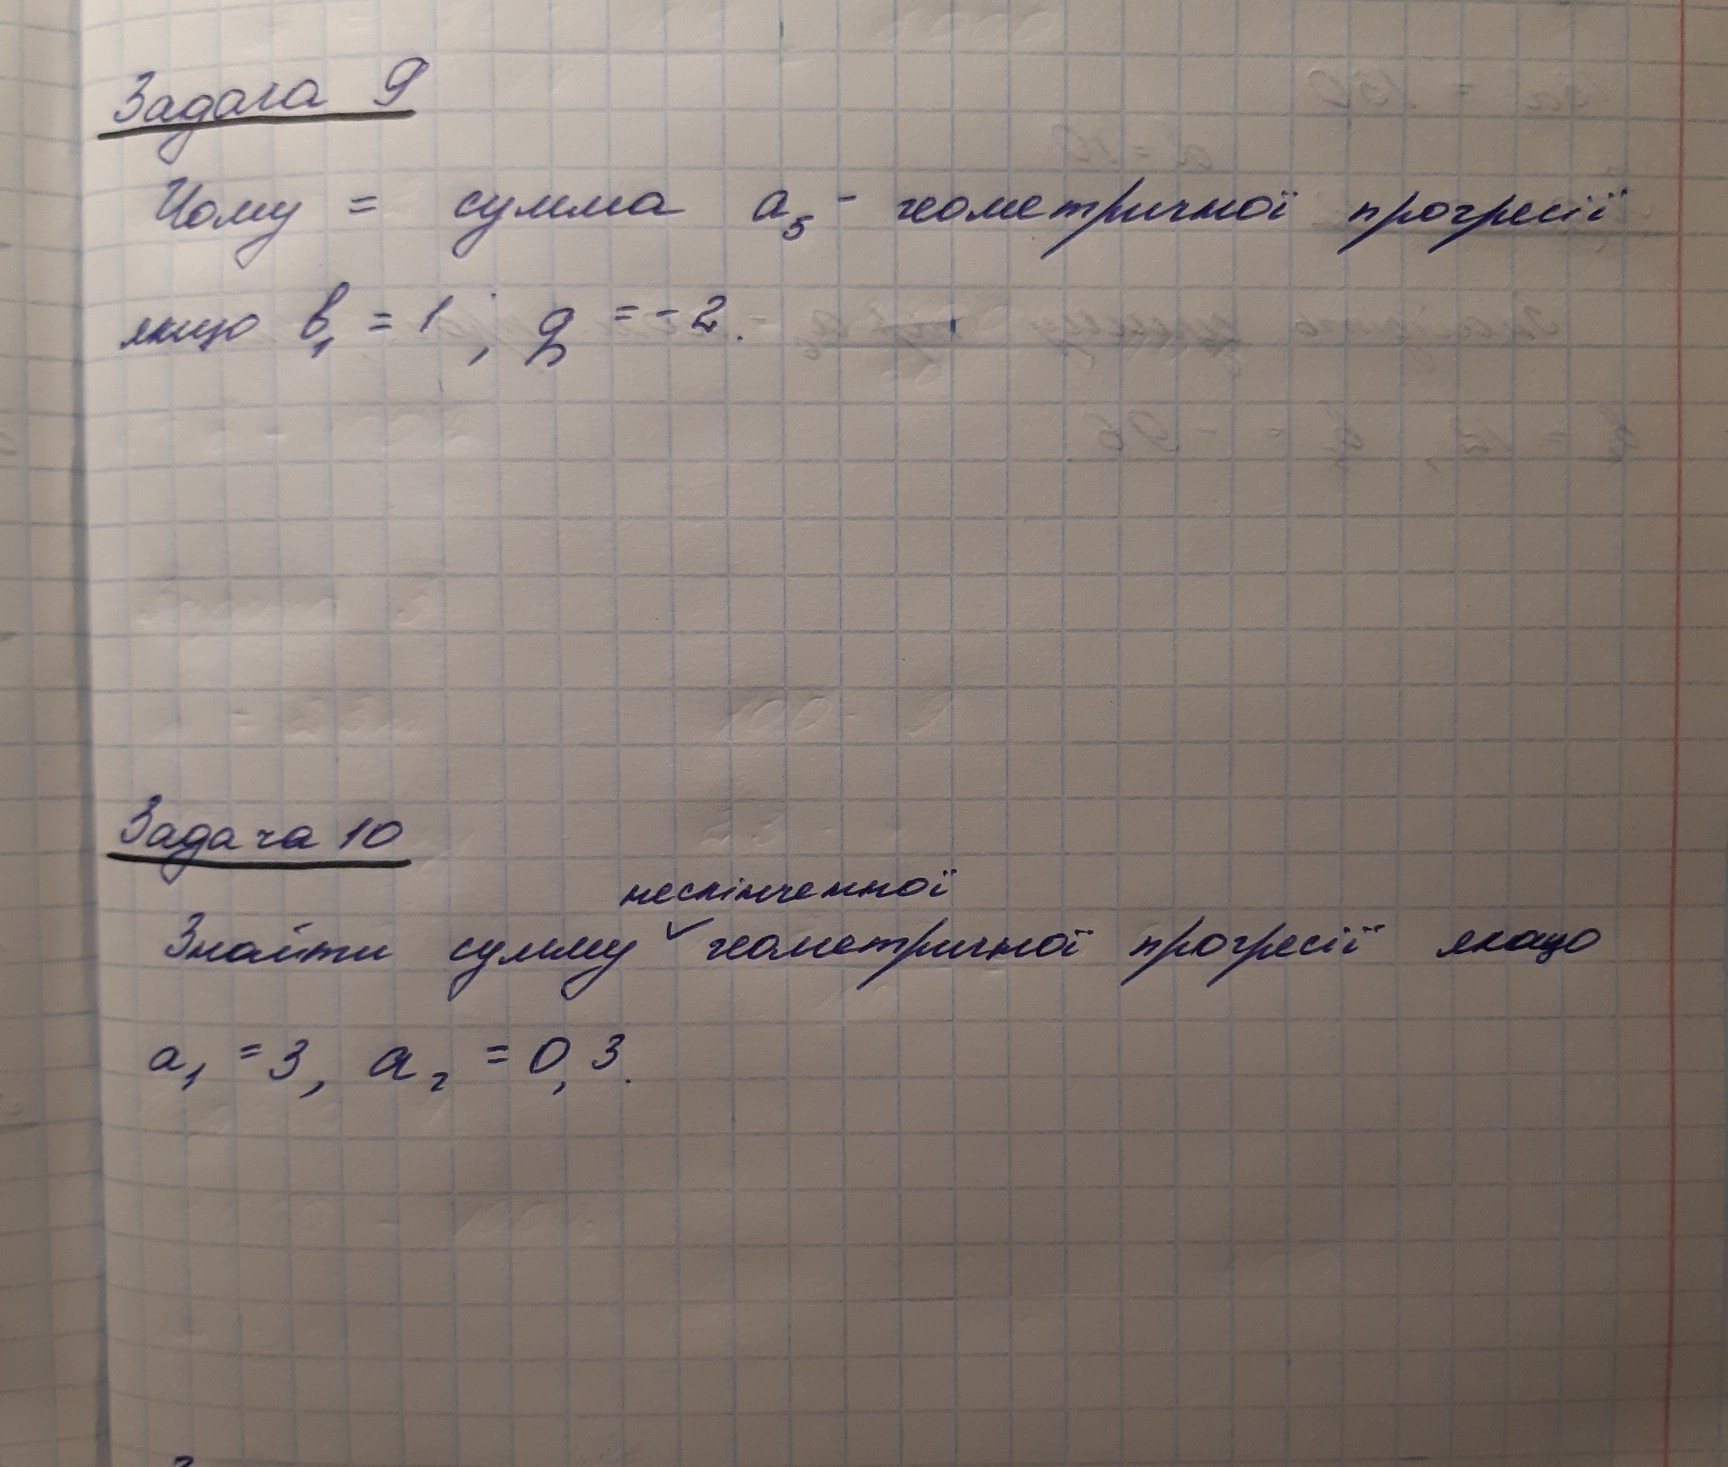 Задача 9
Чому = сумма a₅ - геометричної прогресії
якщо b₁ = 1 ; q = -2.
Задача 10
нескінченної
Знайти сумму ✓ геометричної прогресії якщо
a₁ = 3, a₂ = 0,3.